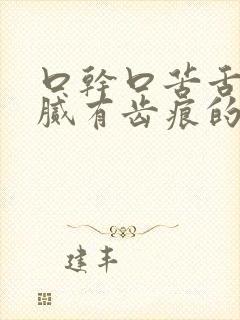 口幹口苦舌
膩有齿痕的
建丰